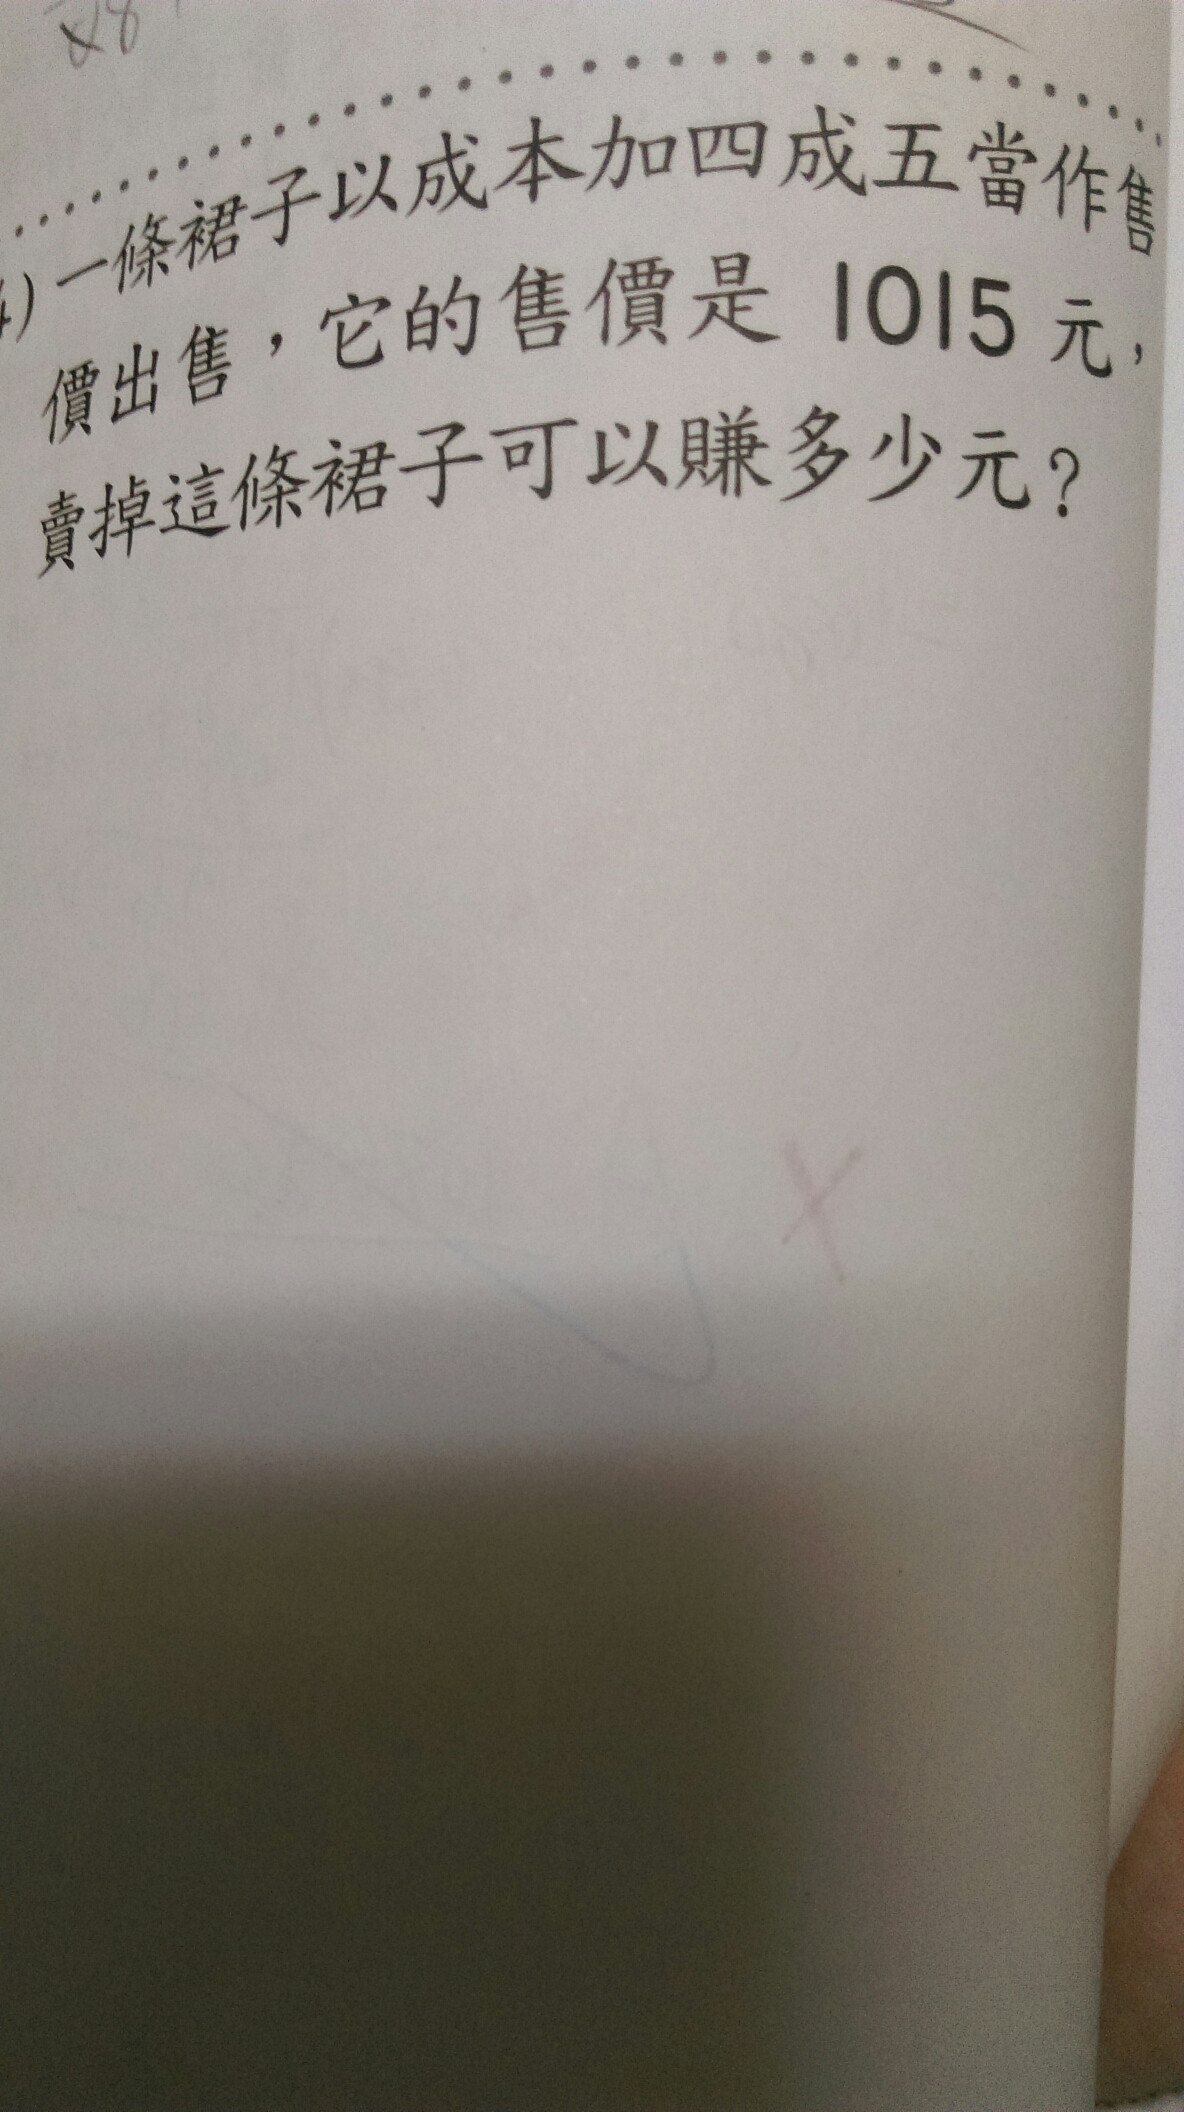 一條裙子以成本加四成五當作售
價出售，它的售價是 1015 元，
賣掉這條裙子可以賺多少元？